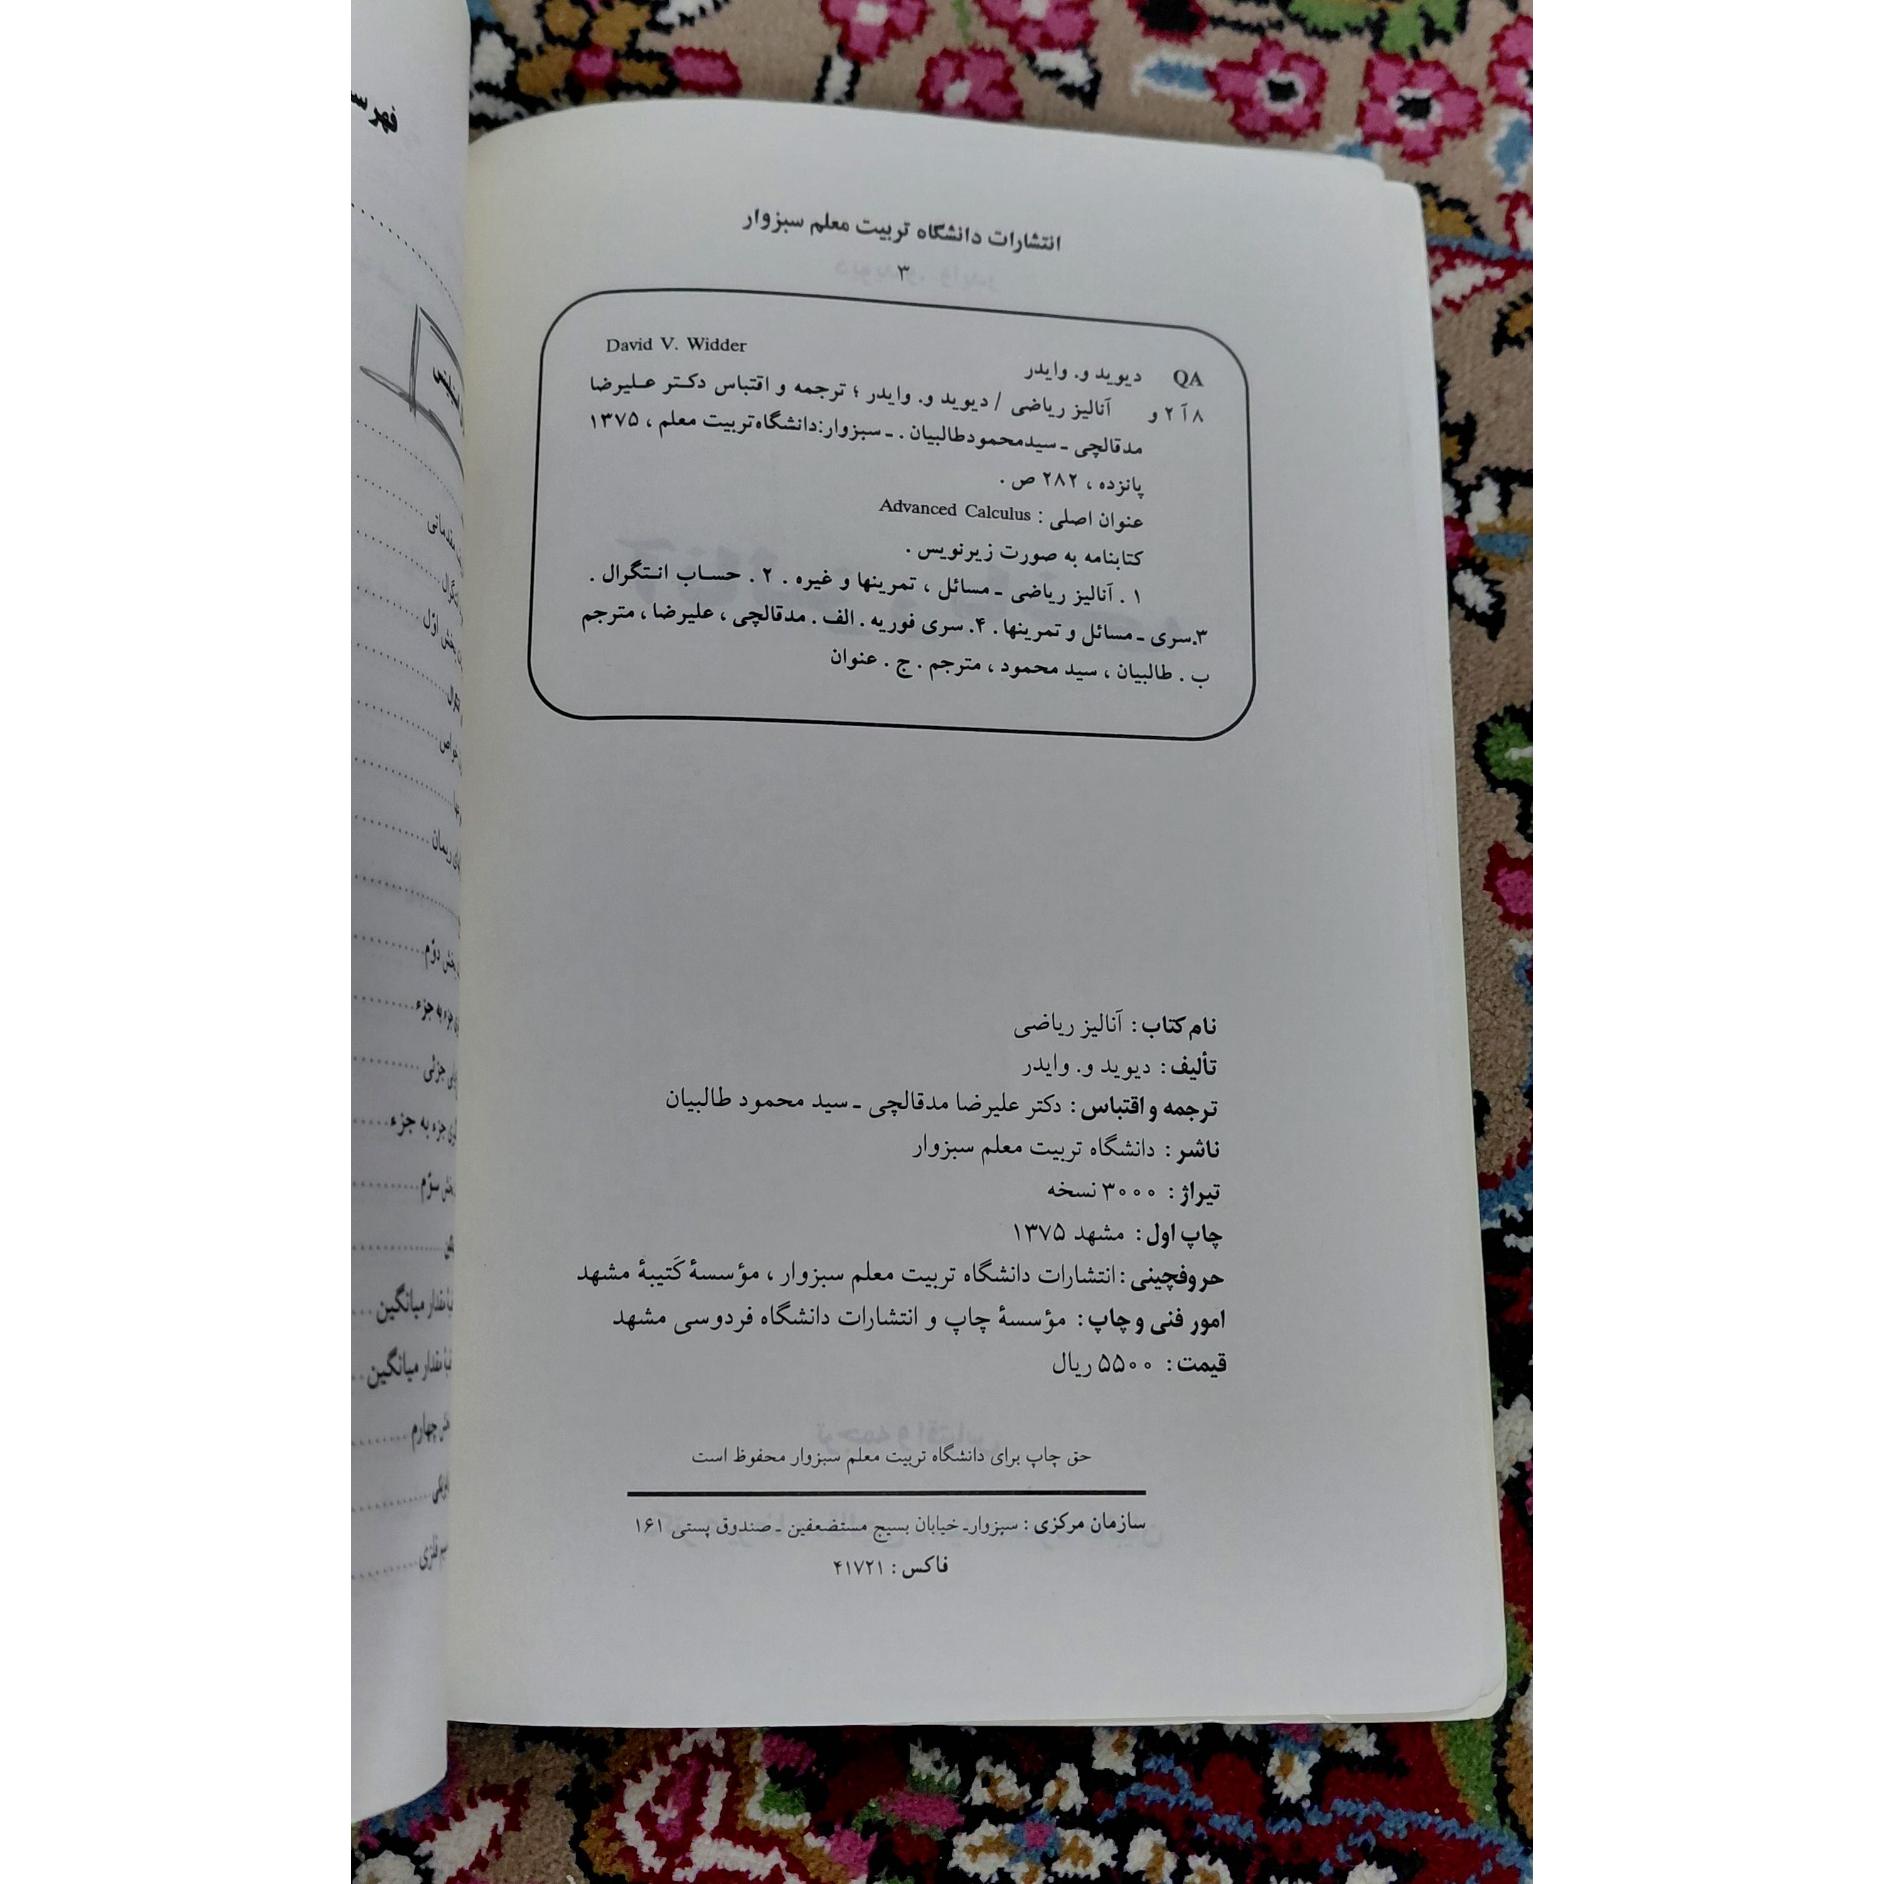 انتشارات دانشگاه تربیت معلم سبزوار
۳
David V. Widder
QA دیوید و. وایدر
۸ آ ۲ و آنالیز ریاضی / دیوید و. وایدر ؛ ترجمه و اقتباس دکتر علیرضا
مدقالچی ـ سیدمحمودطالبیان . ـ سبزوار:دانشگاه‌تربیت معلم ، ۱۳۷۵
پانزده ، ۲۸۲ ص .
عنوان اصلی : Advanced Calculus
کتابنامه به صورت زیرنویس .
۱ . آنالیز ریاضی ـ مسائل ، تمرینها و غیره . ۲ . حساب انتگرال .
۳.سری ـ مسائل و تمرینها. ۴. سری فوریه . الف . مدقالچی ، علیرضا ، مترجم
ب . طالبیان ، سید محمود ، مترجم . ج . عنوان
نام کتاب : آنالیز ریاضی
تألیف : دیوید و. وایدر
ترجمه و اقتباس : دکتر علیرضا مدقالچی ـ سید محمود طالبیان
ناشر : دانشگاه تربیت معلم سبزوار
تیراژ : ۳۰۰۰ نسخه
چاپ اول : مشهد ۱۳۷۵
حروفچینی : انتشارات دانشگاه تربیت معلم سبزوار ، مؤسسهٔ کَتیبهٔ مشهد
امور فنی و چاپ : مؤسسهٔ چاپ و انتشارات دانشگاه فردوسی مشهد
قیمت : ۵۵۰۰ ریال
حق چاپ برای دانشگاه تربیت معلم سبزوار محفوظ است
سازمان مرکزی : سبزوارـ خیابان بسیج مستضعفین ـ صندوق پستی ۱۶۱
فاکس : ۴۱۷۲۱
مقدماتی
بخش اوّل
خواص
ریمان
بخش دوّم
جزء به جزء
جزئی
جزء به جزء
بخش سوّم
مقدار میانگین
مقدار میانگین
چهارم